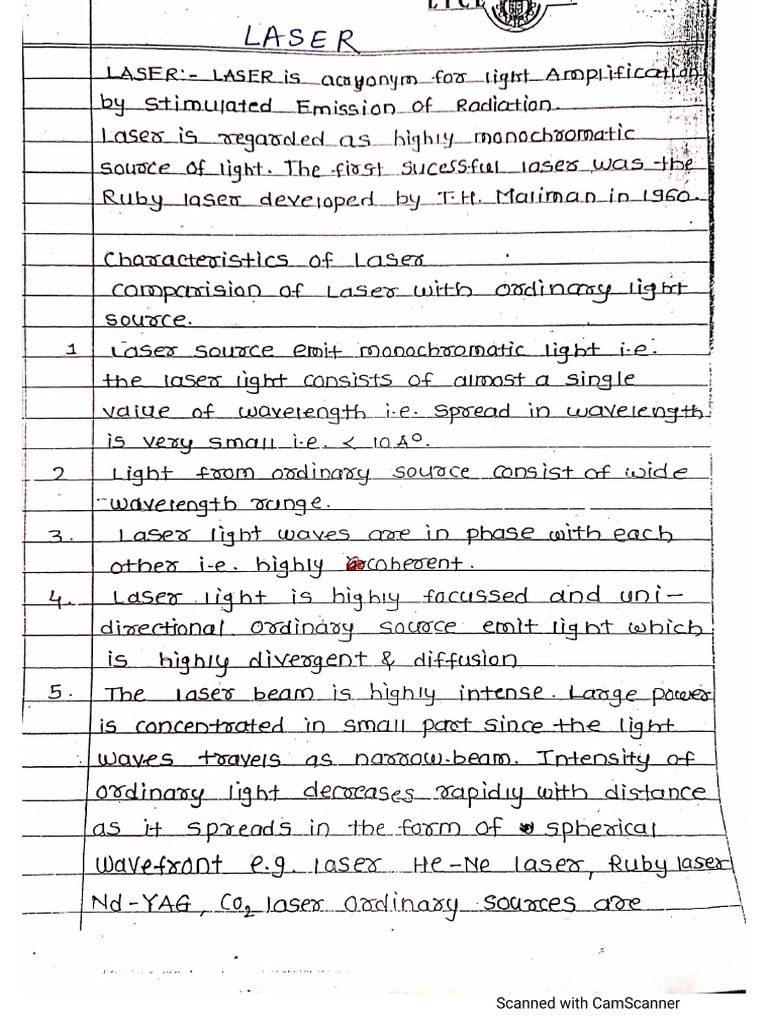 LASER
LASER:- LASER is acroyonym for light Amplification
by Stimulated Emission of Radiation.
Laser is regarded as highly monochromatic
source of light. The first sucessful laser was the
Ruby laser developed by T.H. Maliman in 1960.
Characteristics of Laser
comparision of Laser with ordinary light
source.
1 Laser source emit monochromatic light i.e.
the laser light consists of almost a single
value of wavelength i.e. spread in wavelength
is very small i.e. < 10 A°.
2 Light from ordinary source consist of wide
wavelength range.
3. Laser light waves are in phase with each
other i.e. highly coherent.
4. Laser light is highly focussed and uni-
directional ordinary source emit light which
is highly divergent & diffusion
5. The laser beam is highly intense. Large power
is concentrated in small part since the light
waves travels as narrow beam. Intensity of
ordinary light decreases rapidly with distance
as it spreads in the form of spherical
wavefront e.g. laser He-Ne laser, Ruby laser
Nd-YAG, CO2 laser ordinary sources are
Scanned with CamScanner